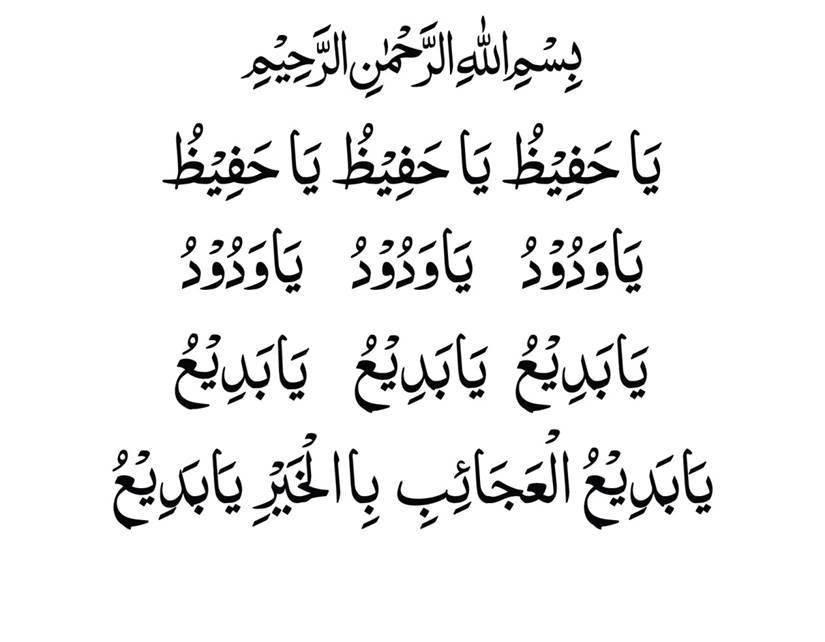 بِسْمِ اللهِ الرَّحْمٰنِ الرَّحِيْمِ
يَا حَفِيْظُ يَا حَفِيْظُ يَا حَفِيْظُ
يَاوَدُوْدُ يَاوَدُوْدُ يَاوَدُوْدُ
يَابَدِيْعُ يَابَدِيْعُ يَابَدِيْعُ
يَابَدِيْعُ الْعَجَائِبِ بِاالْخَيْرِ يَابَدِيْعُ